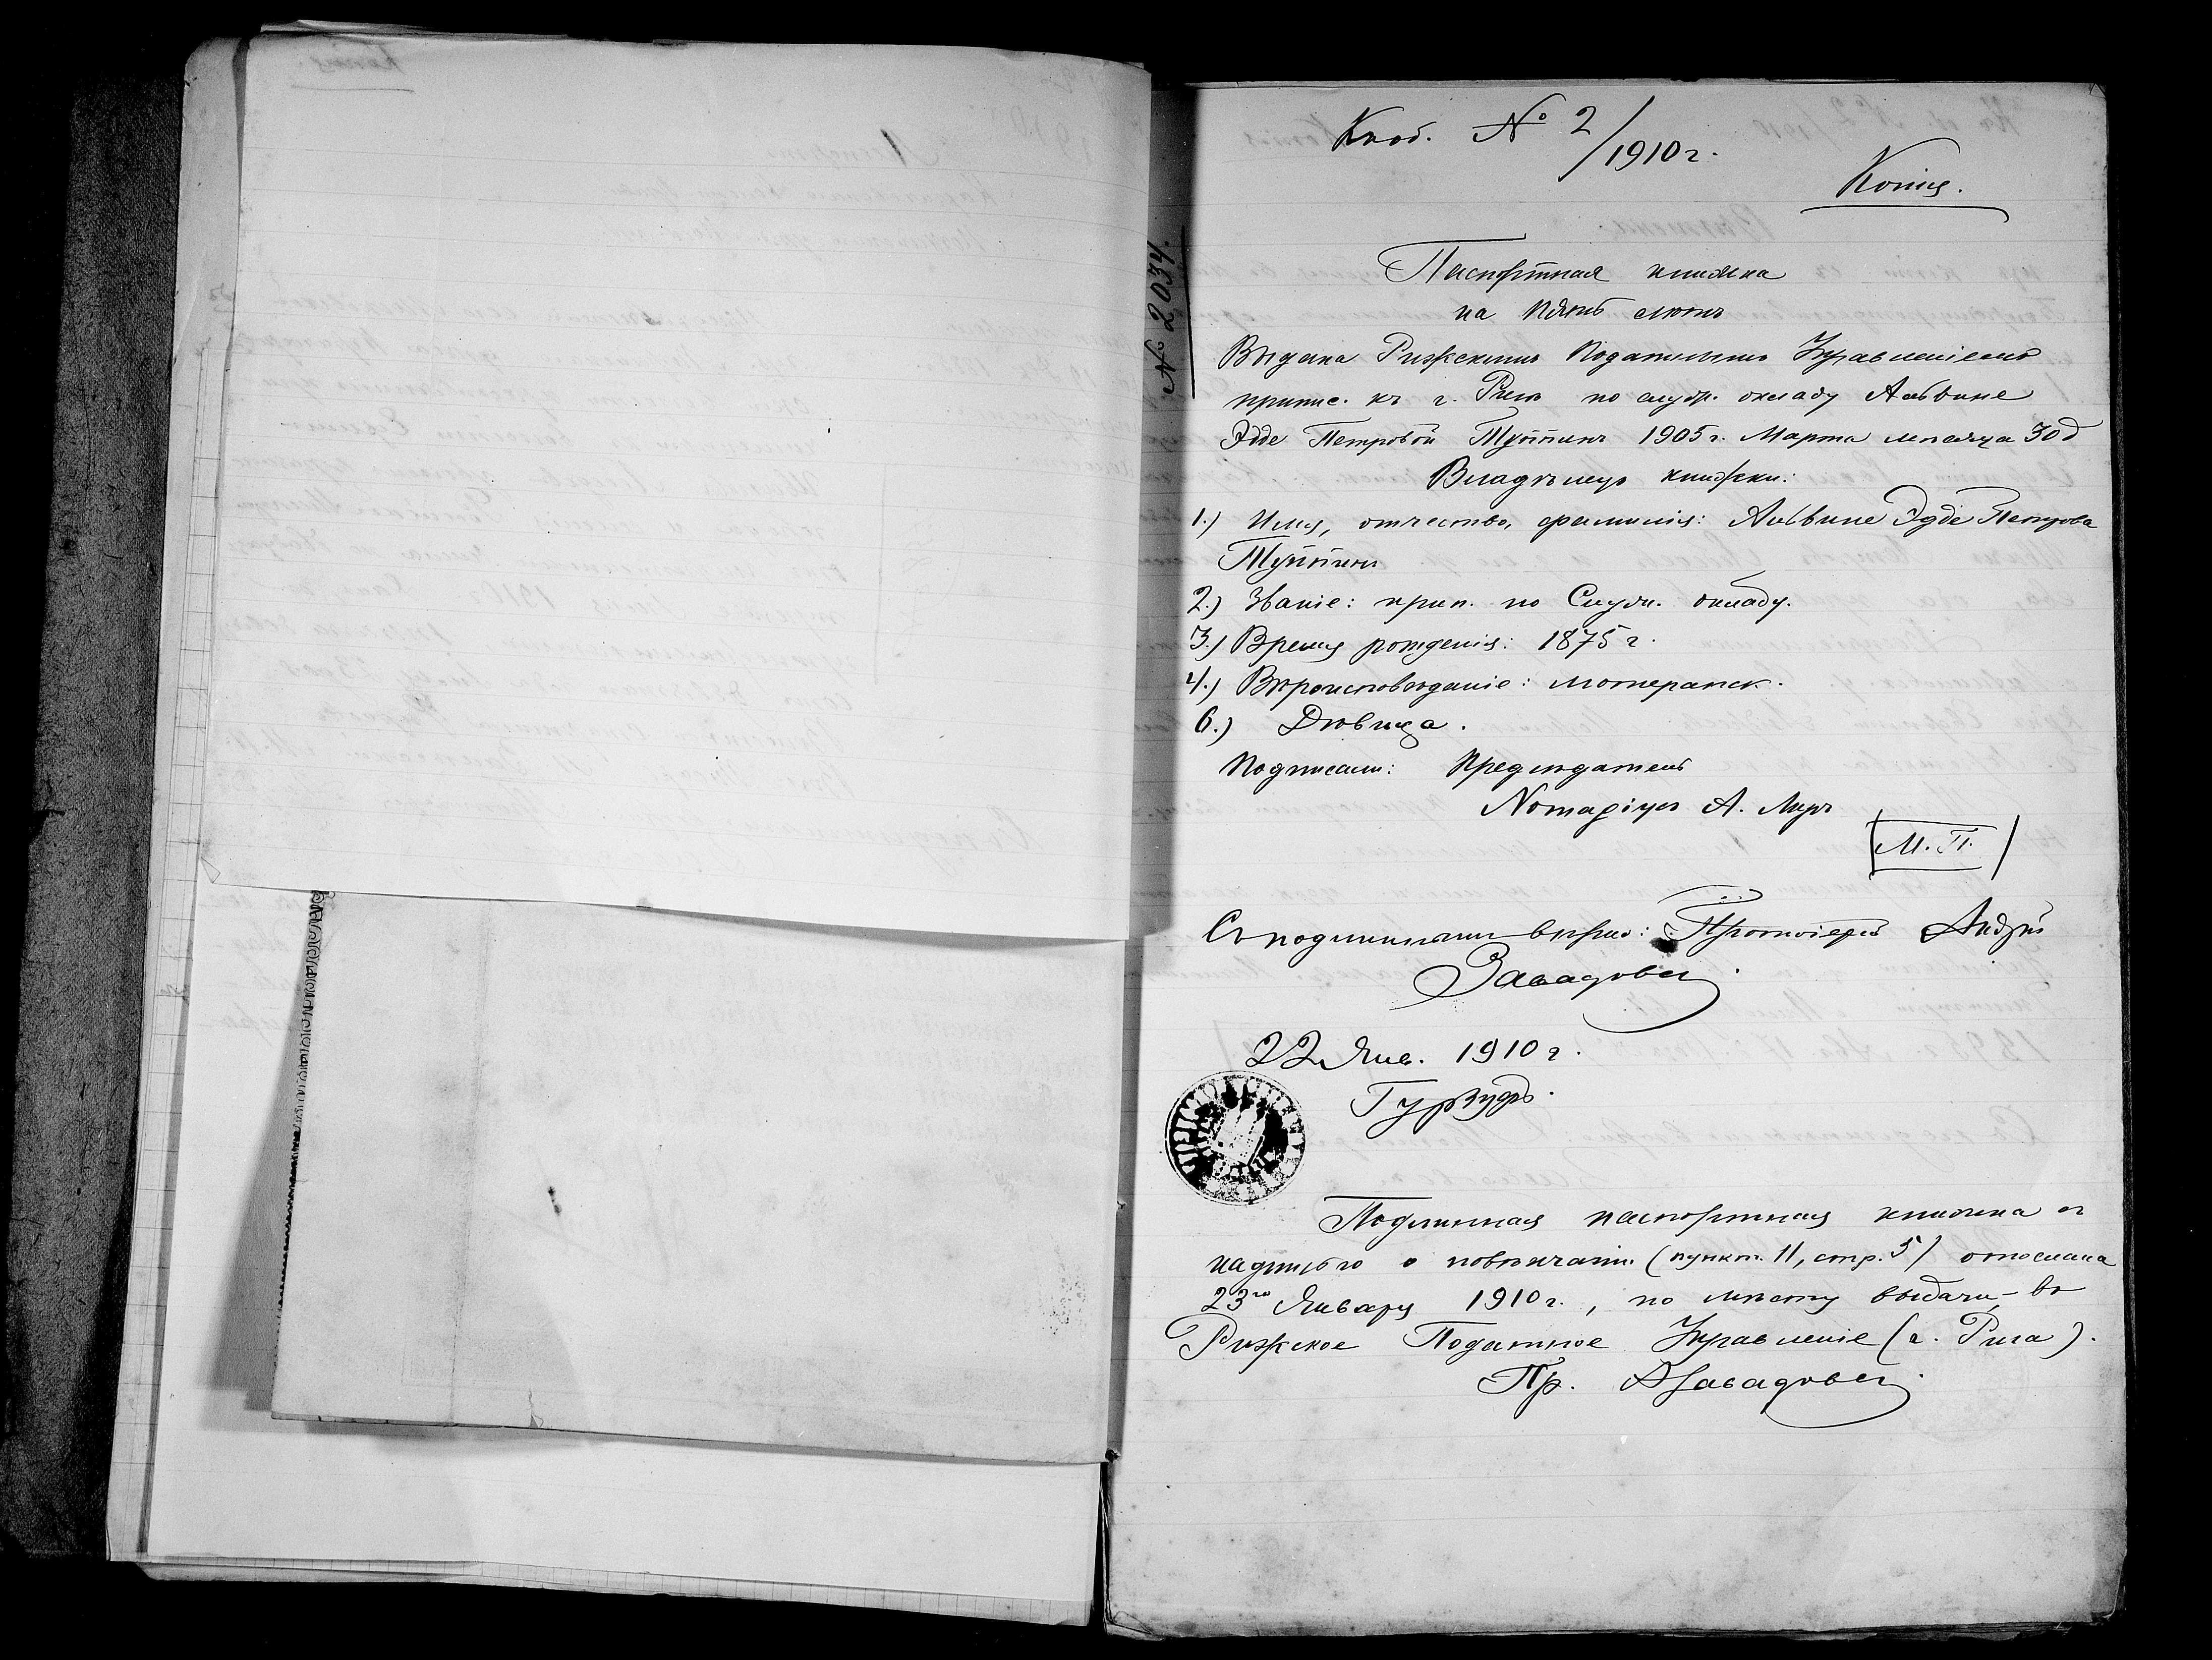 К no8. № 2/1910 г.
Копія.
№ 2034.
Паспортная книжка
на пять лѣтъ
Выдана Рижскимъ Податнымъ Управленіемъ
припис. къ г. Ригѣ по служ. окладу Альвине
Эдде Петровой 1905 г. Марта мѣсяца 30 д
Владѣлецъ книжки:
1.) Имя, отчество, фамилія: Альвине Эдде Петрова
2.) Званіе: прип. по Служ. окладу.
3.) Время рожденія: 1875 г.
4.) Вѣроисповѣданіе: лютеранск.
6.) Дѣвица.
Подписали: Предсѣдатель
Нотаріусъ А.
М. П.
Съ подлиннымъ вѣрно: Протоіерей Андрей
Завадовск
22 Янв. 1910 г.
Гурзуфъ.
Подлинная паспортная книжка съ
надписью о повѣнчаніи (пункт. 11, стр. 5) отослана
23го Января 1910 г., по мѣсту выдачи, въ
Рижское Податное Управленіе (г. Рига).
Пр. А Завадовск